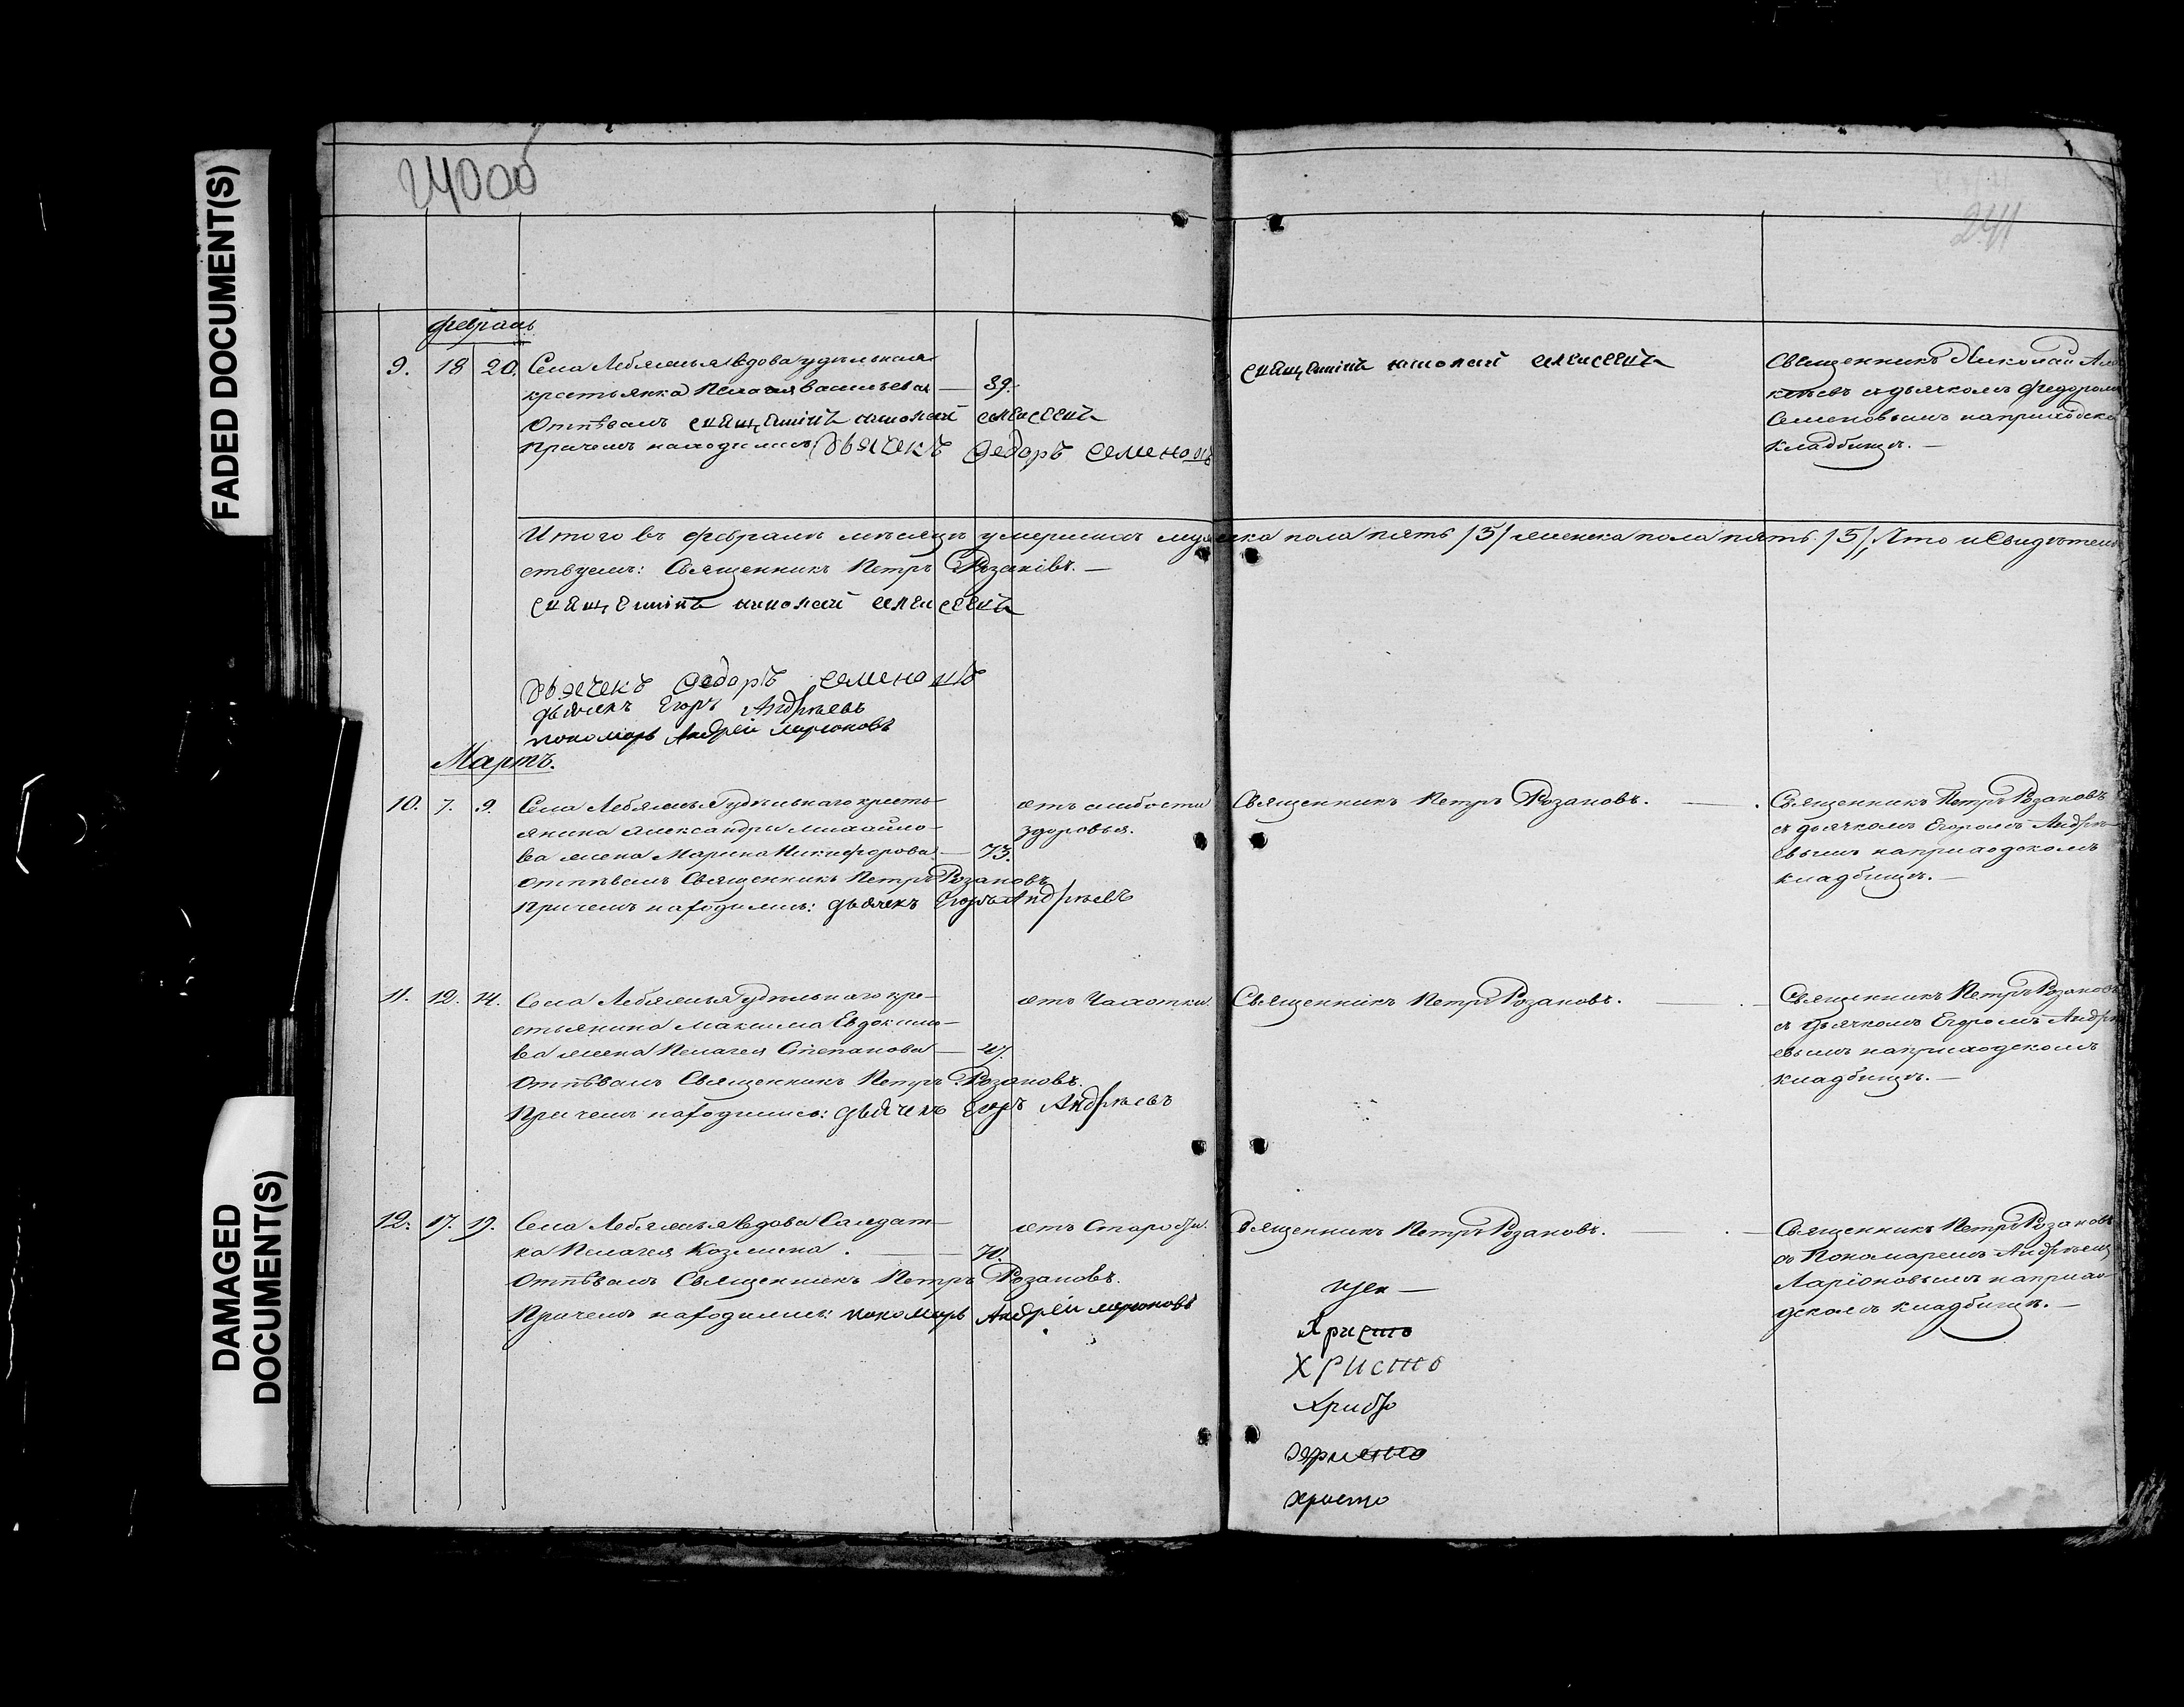 FADED DOCUMENT(S)
DAMAGED
DOCUMENT(S)
240об
241
Февраль
9. 18 20. Села Лебяжья вдова удѣльная
крестьянка Пелагея Васильева — 89.
Отпѣвалъ священникъ николай алексеевъ
Причемъ находились: Дьячекъ Федоръ Семеновъ
священникъ николай алексеевъ
Священникъ Николай Але
ксѣевъ съ дьячкомъ Федоромъ
Семеновымъ на приходско
кладбищѣ. —
Итого въ февралѣ мѣсяцѣ умершихъ мужеска пола пять /5/ женска пола пять /5/, Что и Свидѣтель
ствуемъ: Священникъ Петръ Розановъ. —
священникъ николай алексеевъ
Дьячекъ Федоръ Семеновъ
дьячекъ Егоръ Андрѣевъ
пономарь Андрей Ларионовъ
Мартъ.
10. 7. 9. Села Лебяжья удѣльнаго кресть-
янина Александра Михайло-
ва жена Марина Никифорова — 73.
отпѣвалъ Священникъ Петръ Розановъ
Причемъ находились: дьячекъ Егоръ Андрѣевъ
отъ слабости
здоровья.
Священникъ Петръ Розановъ. —
Священникъ Петръ Розановъ
съ дьячкомъ Егоромъ Андрѣ-
евымъ на приходскомъ
кладбищѣ. —
11. 12. 14. Села Лебяжья удѣльнаго кре-
стьянина Максима Евдокимо-
ва жена Пелагея Степанова — 47.
Отпѣвалъ Священникъ Петръ Розановъ.
Причемъ находились: дьячекъ Егоръ Андрѣевъ
отъ Чахотки.
Священникъ Петръ Розановъ. —
Священникъ Петръ Розановъ
съ дьячкомъ Егоромъ Андрѣ
евымъ на приходскомъ
кладбищѣ. —
12. 17. 19. Села Лебяжья вдова Салдат-
ка Пелагея Козмина. — 70.
Отпѣвалъ Священникъ Петръ Розановъ.
Причемъ находились: пономарь Андрей Ларионовъ
отъ Старости.
Священникъ Петръ Розановъ. —
Священникъ Петръ Розановъ
съ Пономаремъ Андрѣемъ
Ларіоновымъ на прихо-
дскомъ кладбищѣ. —
Христо
Христо
Христо
христо